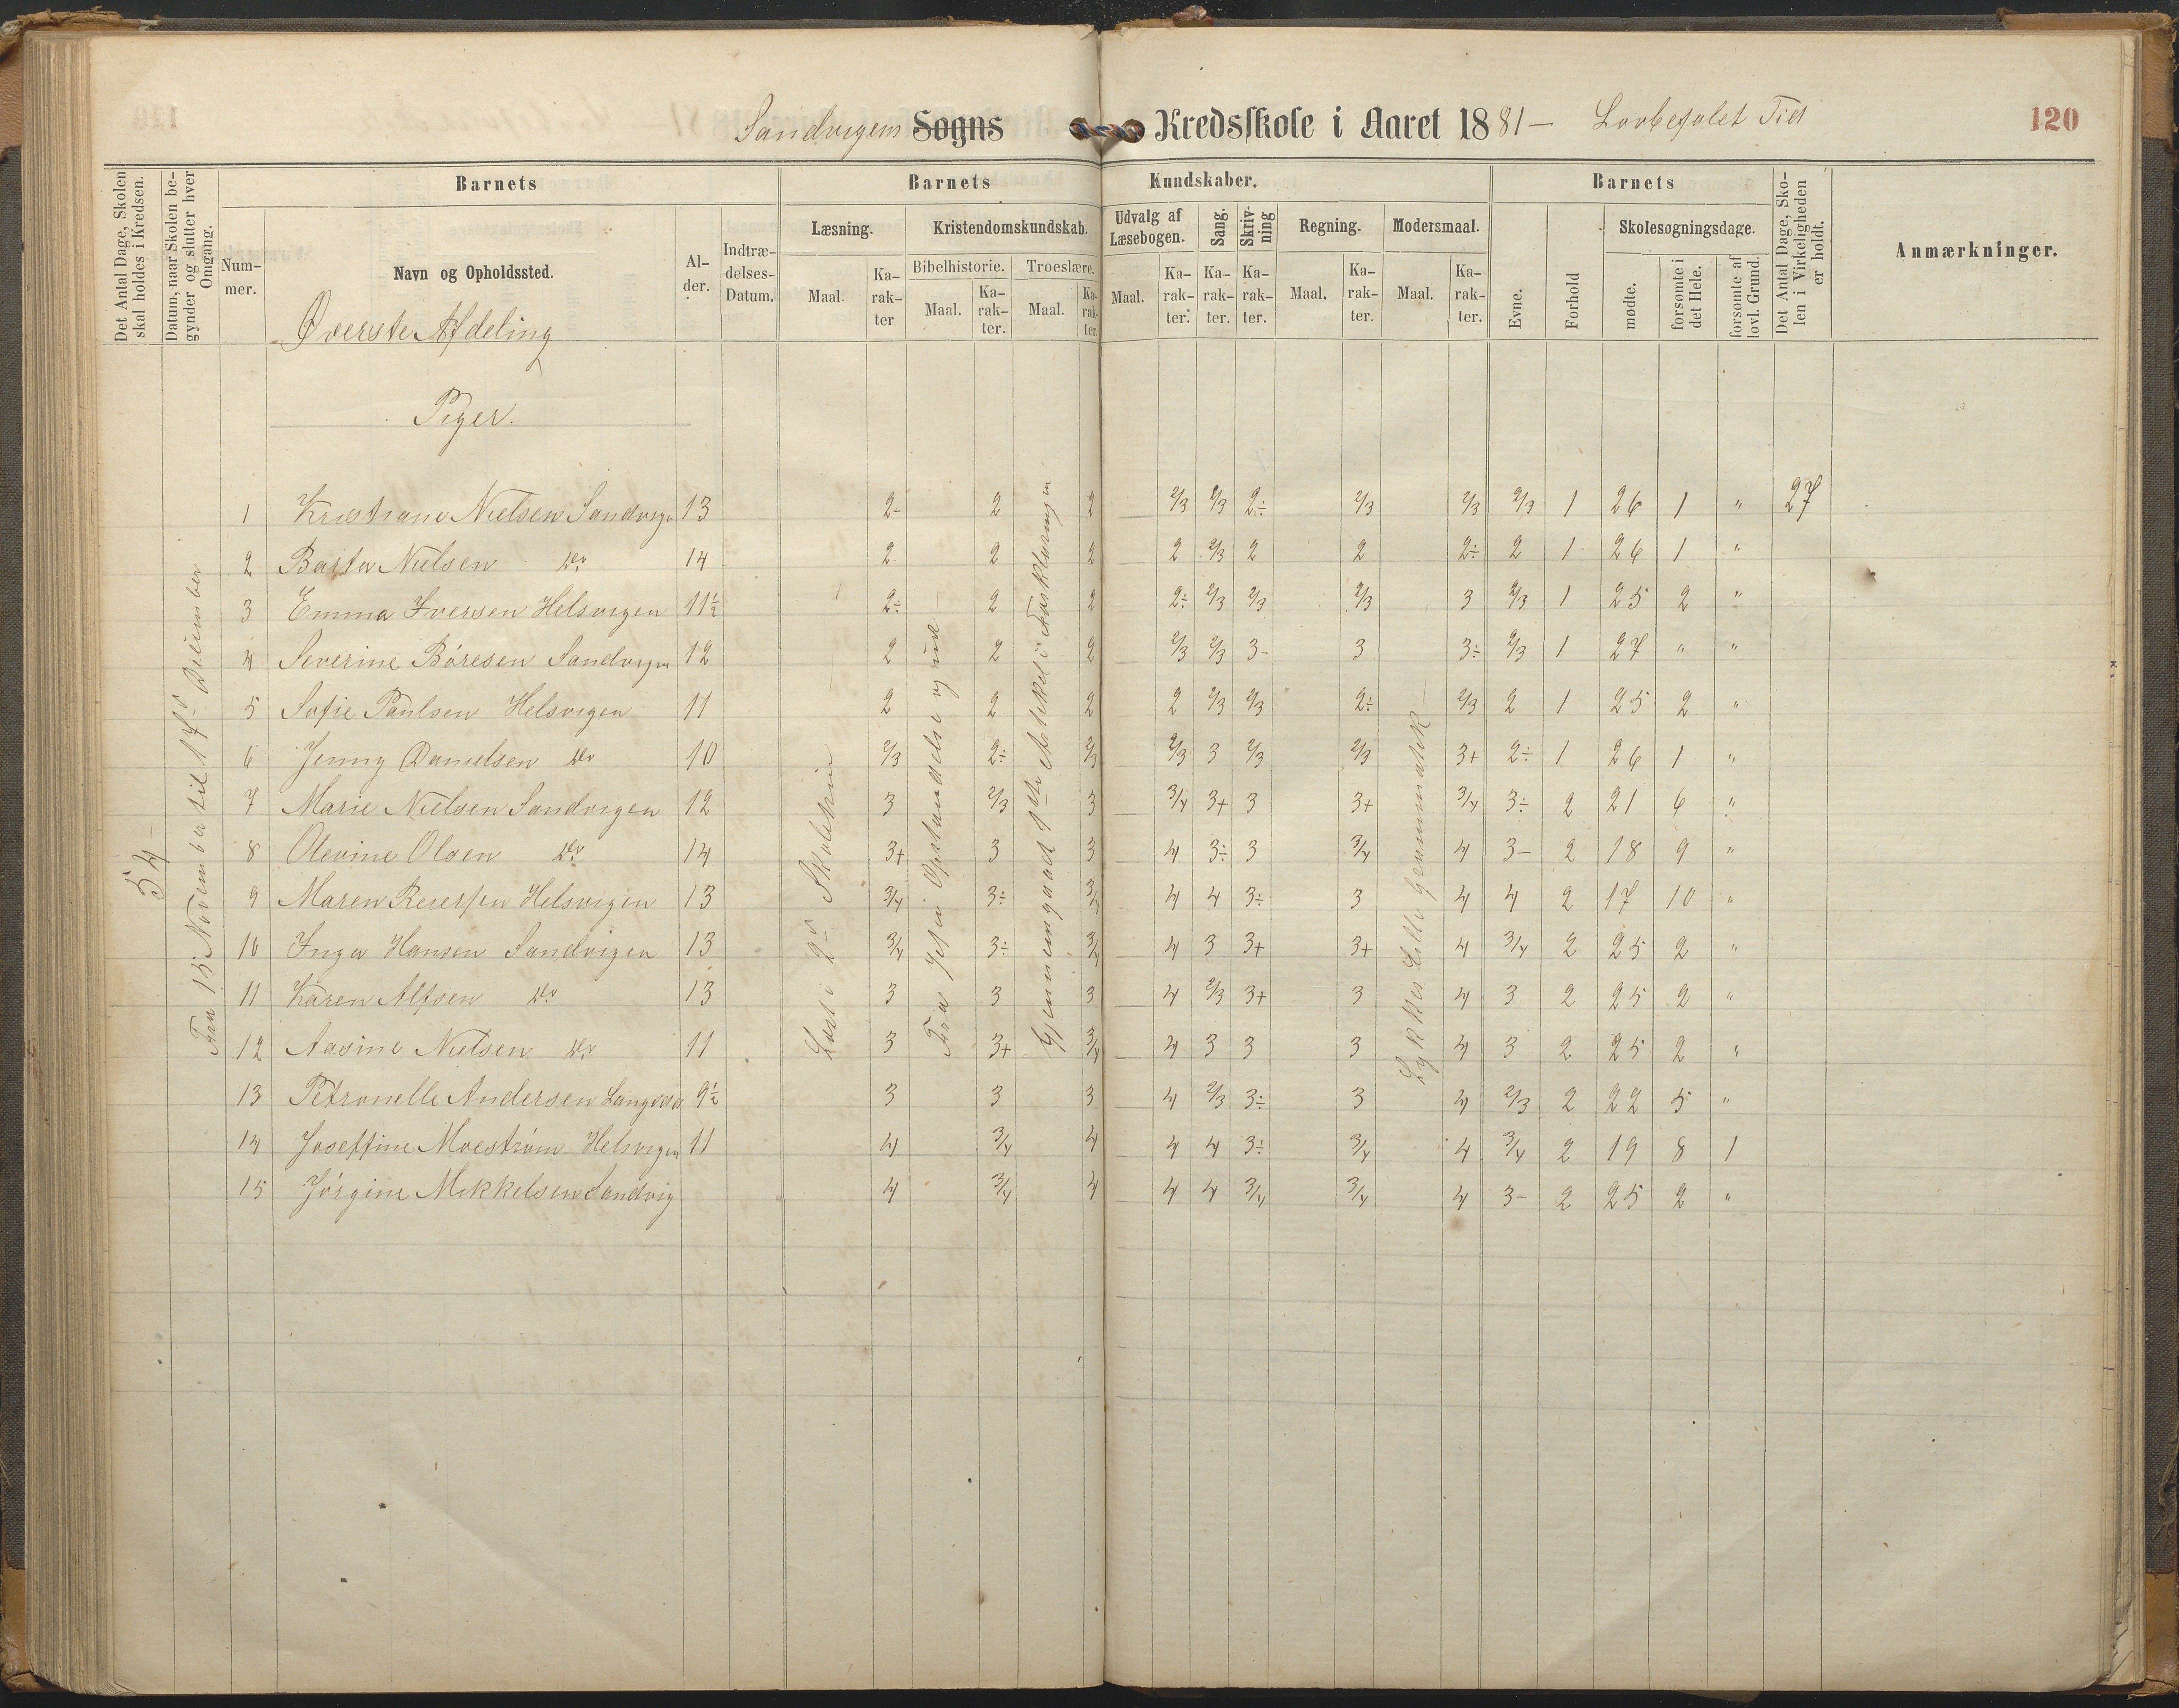 120
Sandvigens Sogns Kredsskole i Aaret 1881 — Lovbefalet Tid
Det Antal Dage, Skolen skal holdes i Kredsen.
Datum, naar Skolen begynder og slutter hver Omgang.
Barnets
Barnets Kundskaber.
Barnets
Det Antal Dage, Skolen i Virkeligheden er holdt.
Anmærkninger.
Nummer.
Navn og Opholdssted.
Alder.
Indtrædelses-Datum.
Læsning.
Kristendomskundskab.
Udvalg af Læsebogen.
Sang.
Skrivning
Regning.
Modersmaal.
Evne.
Forhold
Skolesøgningsdage.
Bibelhistorie.
Troeslære.
Maal.
Karakter
Maal.
Karakter.
Maal.
Karakter.
Maal.
Karakter.
Karakter.
Karakter.
Maal.
Karakter.
Maal.
Karakter.
mødte.
forsømte i det Hele.
forsømte af lovl. Grund.
Øverste Afdeling
Piger.
54 —
Fra 15 November til 17de December
Læst i 2d Skoletrin
Fra Jesu Opstandelse og ud
Gjennemgaaet 1ste Artikel i Forklaringen
Lykkes lille Grammatik —
1 Kristiane Nielsen Sandvign 13 2- 2 2 2/3 2/3 2÷ 2/3 2/3 2/3 1 26 1 " 27
2 Basta Nielsen do 14 2 2 2 2 2/3 2 2 2÷ 2 1 26 1 "
3 Emma Iversen Helsvigen 11½ 2÷ 2 2 2÷ 2/3 2/3 2/3 3 2/3 1 25 2 "
4 Severine Böresen Sandvigen 12 2 2 2 2/3 2/3 3- 3 3÷ 2/3 1 27 " "
5 Sofie Paulsen Helsvigen 11 2 2 2 2 2/3 2/3 2÷ 2/3 2 1 25 2 "
6 Jenny Danielsen do 10 2/3 2÷ 2/3 2/3 3 2/3 2/3 3+ 2÷ 1 26 1 "
7 Marie Nielsen Sandvigen 12 3 2/3 3 3/4 3+ 3 3+ 3/4 3÷ 2 21 6 "
8 Olevine Olsen do 14 3+ 3 3 4 3÷ 3 3/4 4 3- 2 18 9 "
9 Maren Reiersen Helsvigen 13 3/4 3÷ 3/4 4 4 3÷ 3 4 4 2 17 10 "
10 Inga Hansen Sandvigen 13 3/4 3÷ 3/4 4 3 3+ 3+ 4 3/4 2 25 2 "
11 Karen Alfsen do 13 3 3 3 4 2/3 3+ 3 4 3 2 25 2 "
12 Aasine Nielsen do 11 3 3+ 3/4 4 3 3 3 4 3 2 25 2 "
13 Petronelle Andersen 9½ 3 3 3 4 2/3 3÷ 3 4 2/3 2 22 5 "
14 Joseffine Moeström Helsvigen 11 4 3/4 4 4 4 3÷ 3/4 4 3/4 2 19 8 1
15 Jörgine Mikkelsen Sandvig 4 3/4 4 4 4 3/4 3/4 4 3- 2 25 2 "